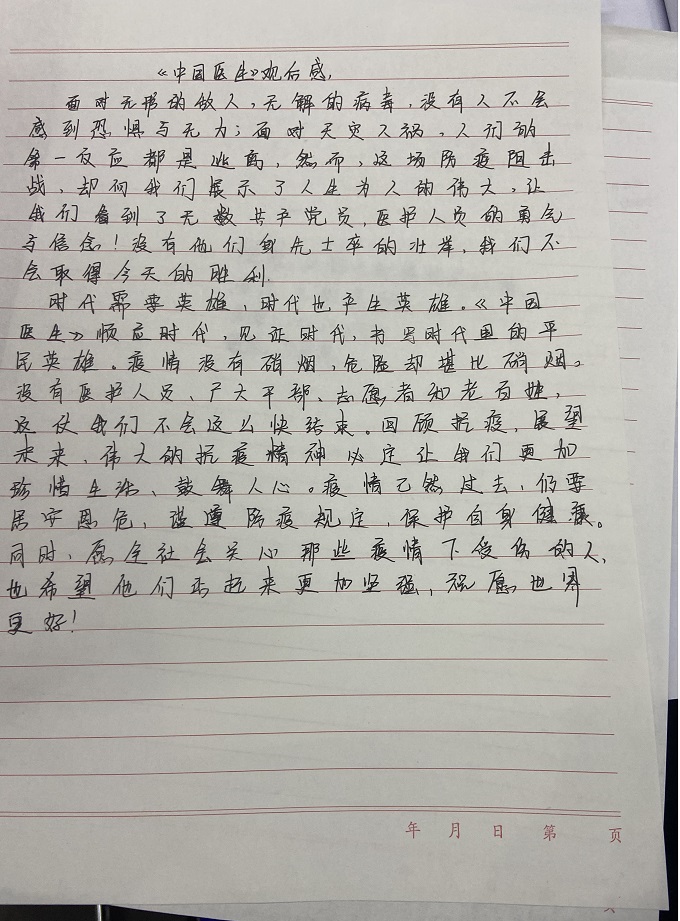 《中国医生》观后感.
面对无形的敌人,无解的病毒,没有人不会
感到恐惧与无力;面对天灾人祸,人们的
第一反应都是逃离,然而,这场防疫阻击
战,却向我们展示了人生为人的伟大,让
我们看到了无数共产党员,医护人员的勇气
与信念!没有他们身先士卒的壮举,我们不
会取得今天的胜利.
时代需要英雄,时代也产生英雄。《中国
医生》顺应时代,见证时代,书写时代里的平
民英雄。疫情没有硝烟,危险却堪比硝烟。
没有医护人员、广大干部、志愿者和老百姓,
这仗我们不会这么快结束。回顾抗疫,展望
未来、伟大的抗疫精神必定让我们更加
珍惜生活、鼓舞人心。疫情已然过去,仍要
居安思危,谨遵防疫规定,保护自身健康。
同时,愿全社会关心那些疫情下受伤的人,
也希望他们走起来更加坚强,祝愿世界
更好!
年 月 日 第 页